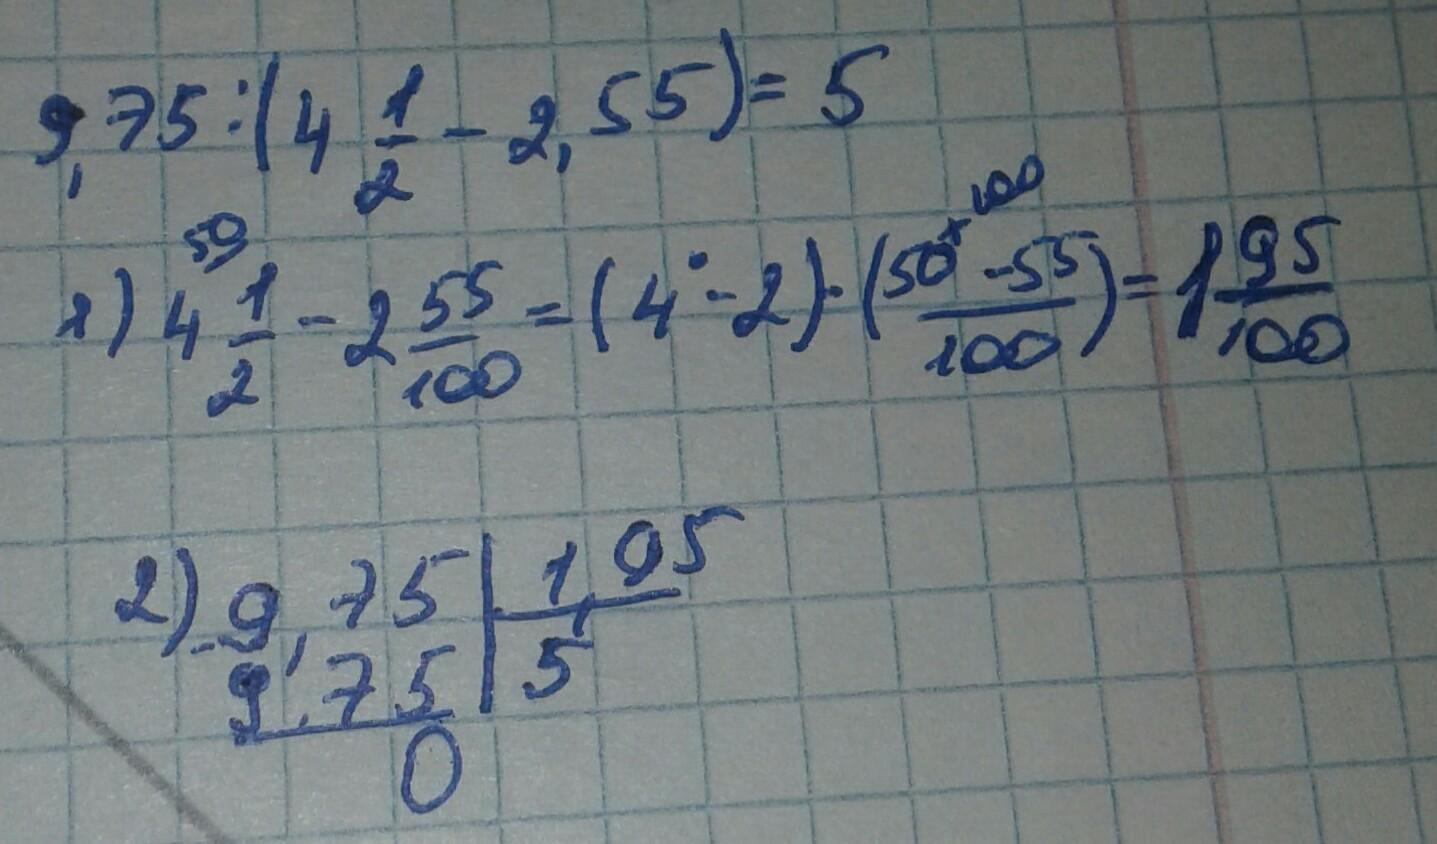 9,75:(4 1/2 - 2,55)= 5
1) 4 1/2 ⁵⁰ - 2 55/100 = (4˙ - 2) · (50⁺¹⁰⁰ - 55/100) = 1 95/100
2) - 9,75 | 1,95
9,75 | 5
0